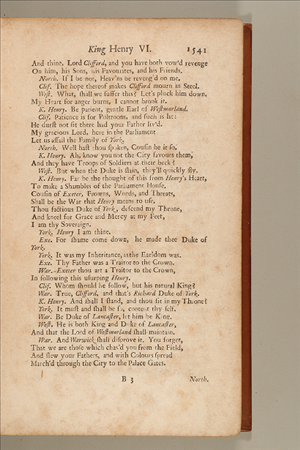 King Henry VI. 1541
And thine, Lord Clifford, and you have both vow'd revenge
On him, his Sons, his Favourites, and his Friends.
North. If I be not, Heav'ns be reveng'd on me.
Clif. The hope thereof makes Clifford mourn in Steel.
West. What, shall we suffer this? Let's pluck him down.
My Heart for anger burns, I cannot brook it.
K. Henry. Be patient, gentle Earl of Westmorland.
Clif. Patience is for Poltroons, and such is he:
He durst not sit there had your Father liv'd.
My gracious Lord, here in the Parliament
Let us assail the Family of York.
North. Well hast thou spoken, Cousin be it so.
K. Henry. Ah, know you not the City favours them,
And they have Troops of Soldiers at their beck?
West. But when the Duke is slain, they'll quickly fly.
K. Henry. Far be the thought of this from Henry's Heart,
To make a Shambles of the Parliament House.
Cousin of Exeter, Frowns, Words, and Threats,
Shall be the War that Henry means to use.
Thou factious Duke of York, descend my Throne,
And kneel for Grace and Mercy at my Feet,
I am thy Sovereign.
York. Henry I am thine.
Exe. For shame come down, he made thee Duke of
York.
York. It was my Inheritance, as the Earldom was.
Exe. Thy Father was a Traitor to the Crown.
War. Exeter thou art a Traitor to the Crown,
In following this usurping Henry.
Clif. Whom should he follow, but his natural King?
War. True, Clifford, and that's Richard Duke of York.
K. Henry. And shall I stand, and thou sit in my Throne?
York. It must and shall be so, content thy self.
War. Be Duke of Lancaster, let him be King.
West. He is both King and Duke of Lancaster,
And that the Lord of Westmorland shall maintain.
War. And Warwick shall disprove it. You forget,
That we are those which chas'd you from the Field,
And slew your Fathers, and with Colours spread
March'd through the City to the Palace Gates.
B 3 North.